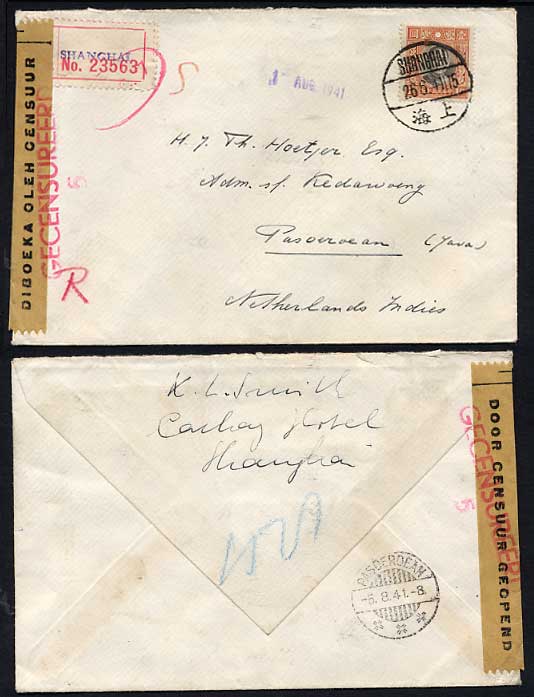 SHANGHAI
No. 23563
DIBOEKA OLEH CENSUUR
GECENSUREERD
5
R
AUG. 1941
SHANGHAI
26.6.41.15
海上
H. J. Th. Hoetjer Esq.
Adm. sf. Kedawoeng
Pasoeroean (Java)
Netherlands Indies
K. L. Smith
Cathay Hotel
Shanghai
PASOEROEAN
-5.8.41.-8.
DOOR CENSUUR GEOPEND
GECENSUREERD
5